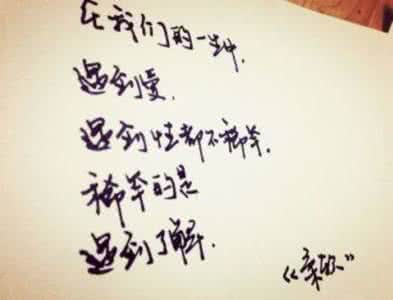 在我们的一生中,
遇到爱,
遇到性都不稀罕,
稀罕的是
遇到了解.